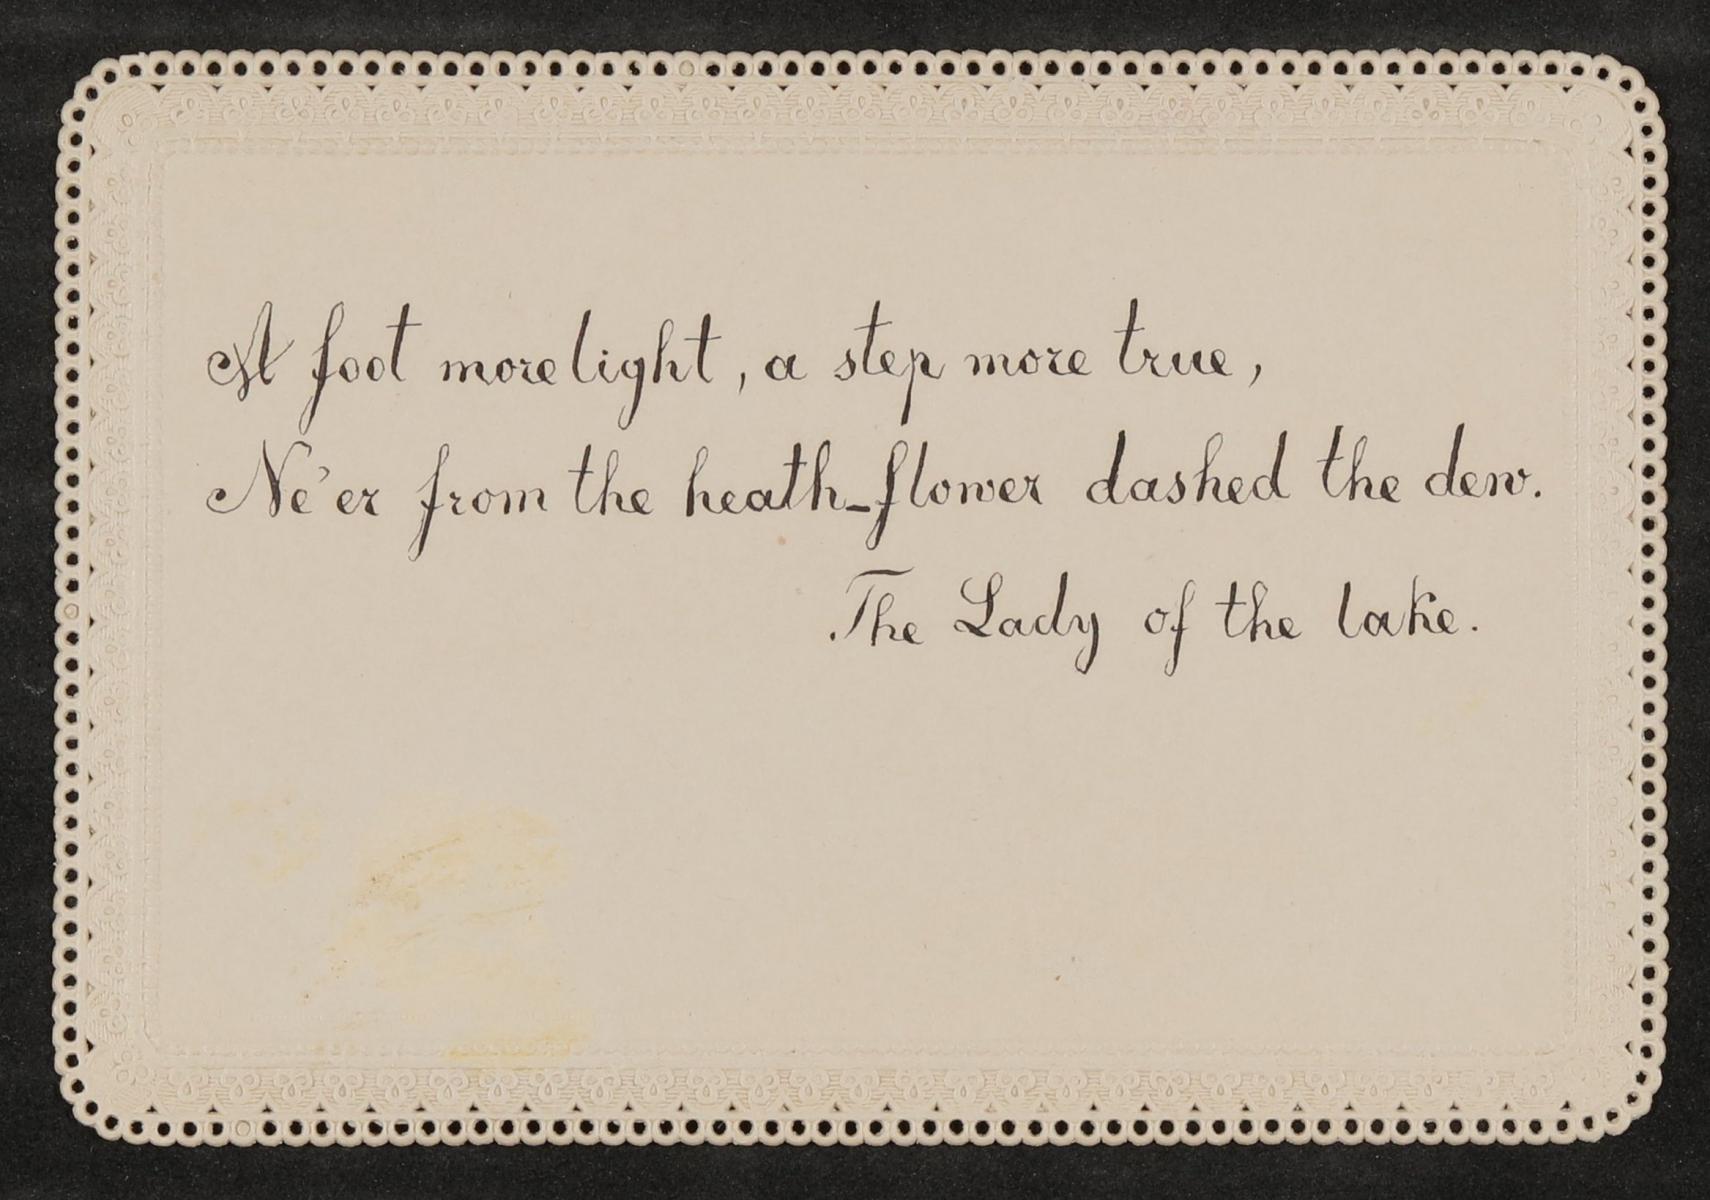 A foot more light, a step more true,
Ne'er from the heath-flower dashed the dew.
The Lady of the lake.